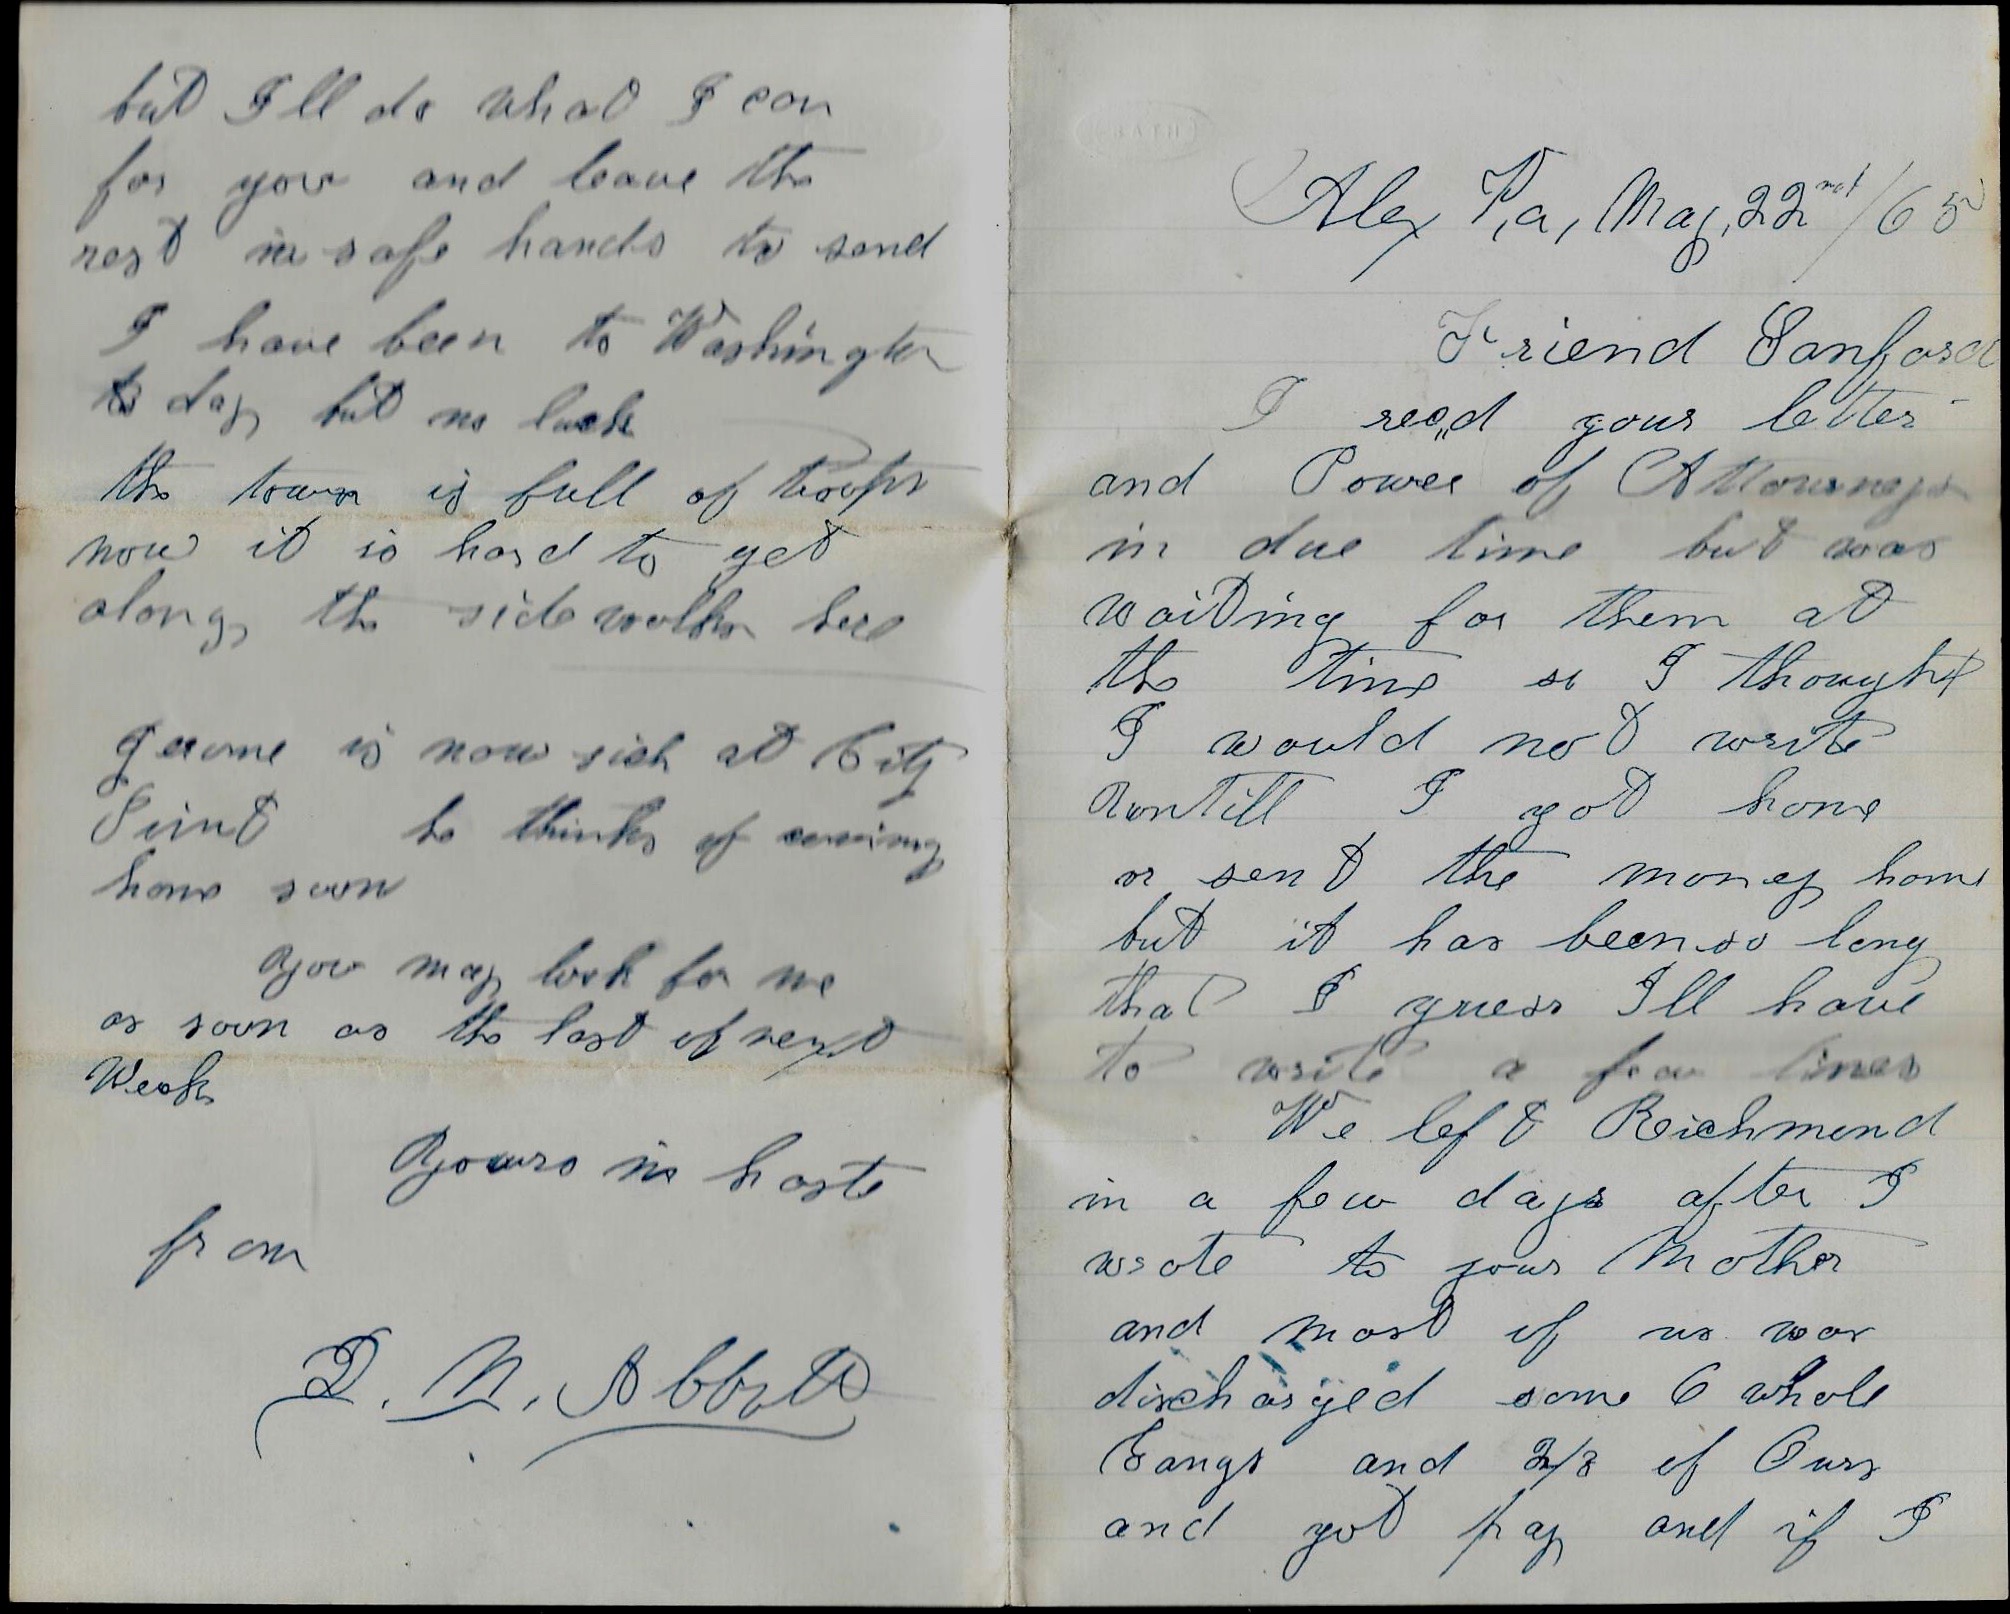 Alex Va, May, 22nd/65
Friend Sanford
I recd your letter
and Power of Attourney
in due time but was
waiting for them at
the time so I thought
I would not write
untill I got home
or sent the money home
but it has been so long
that I guess I'll have
to write a few lines
We left Richmond
in a few days after I
wrote to your Mother
and most of us was
discharged some 6 whole
Gangs and 2/3 of Ours
and got pay and if I
but I'll do what I can
for you and leave the
rest in safe hands to send
I have been to Washington
to day but no luck
the town is full of troops
now it is hard to get
along the side walks here
Jerome is now sick at City
Point he thinks of coming
home soon
you may look for me
as soon as the last of next
Week
Yours in haste
from
D. N. Abbott